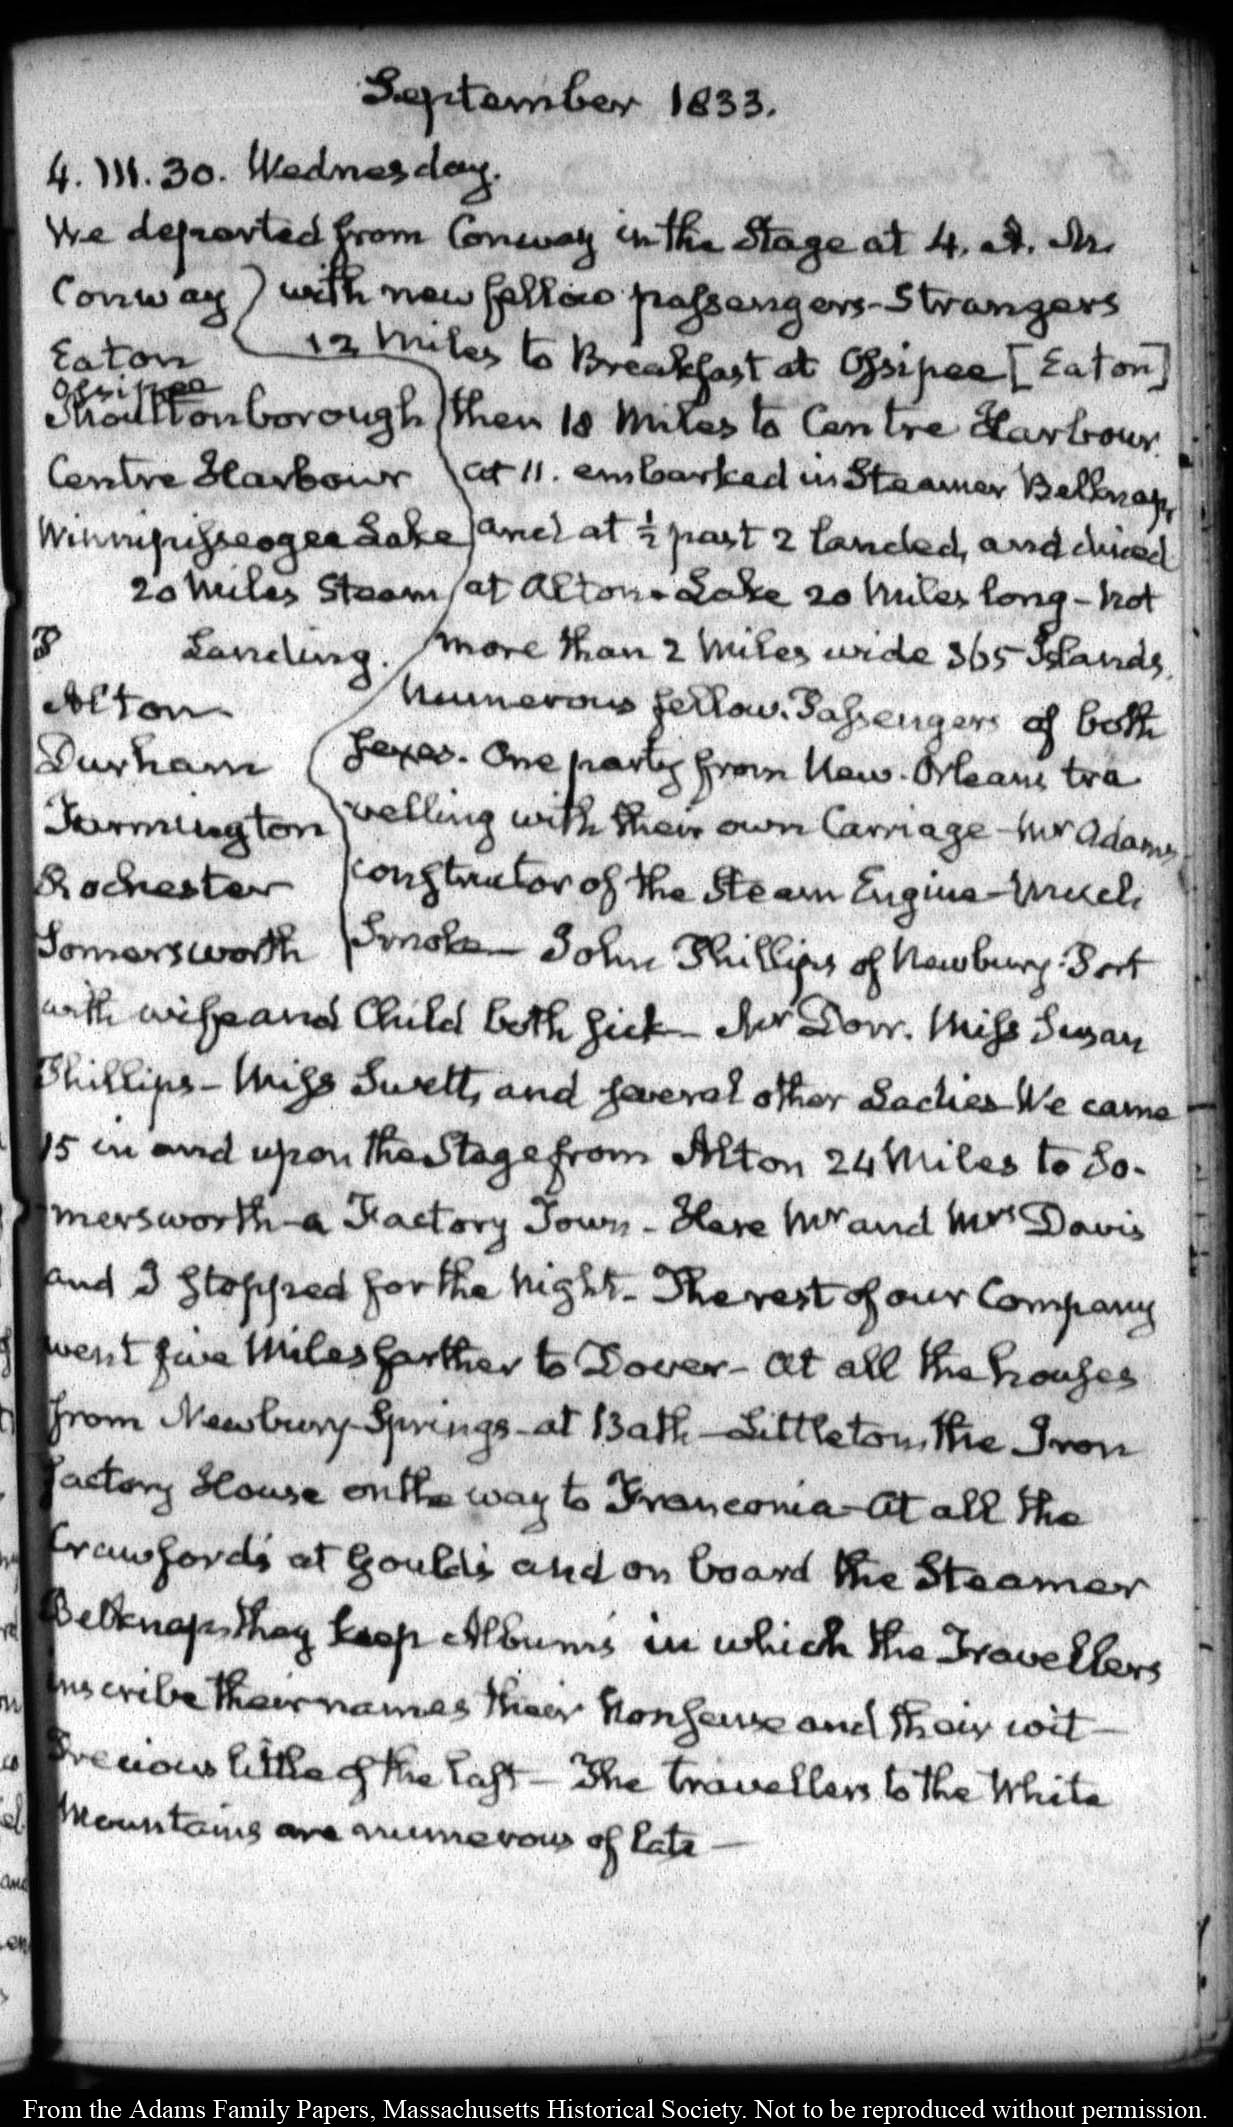 September 1833.
4. III. 30. Wednesday.
We departed from Conway in the Stage at 4. A. M.
Conway with new fellow passengers - Strangers
Eaton 12 Miles to Breakfast at Ossipee [Eaton]
Ossipee
Moultonborough then 18 Miles to Centre Harbour.
Centre Harbour at 11. embarked in Steamer Belknap,
Winnipisseogee Lake and at ½ past 2 landed, and dined
20 Miles Steam at Alton. Lake 20 Miles long - not
Landing. more than 2 Miles wide 365 Islands.
Alton Numerous fellow-Passengers of both
Durham sexes. One party from New-Orleans tra
Farmington velling with their own Carriage - Mr Adams
Rochester constructor of the Steam Engine - Much
Somersworth Smoke - John Phillips of Newbury-Port
with wife and Child both sick - Mr Dorr. Miss Susan
Phillips - Miss Swett, and several other Ladies We came
15 in and upon the Stage from Alton 24 Miles to So-
mersworth - a Factory Town - Here Mr and Mrs Davis
and I stopped for the Night - The rest of our Company
went five Miles farther to Dover - At all the houses
from Newbury-Springs - at Bath - Littleton, the Iron
factory House on the way to Franconia - At all the
Crawford's at Gould's and on board the Steamer
Belknap, they keep Album's in which the Travellers
inscribe their names their Nonsense and their wit -
Precious little of the last - The travellers to the White
Mountains are numerous of late -
From the Adams Family Papers, Massachusetts Historical Society. Not to be reproduced without permission.